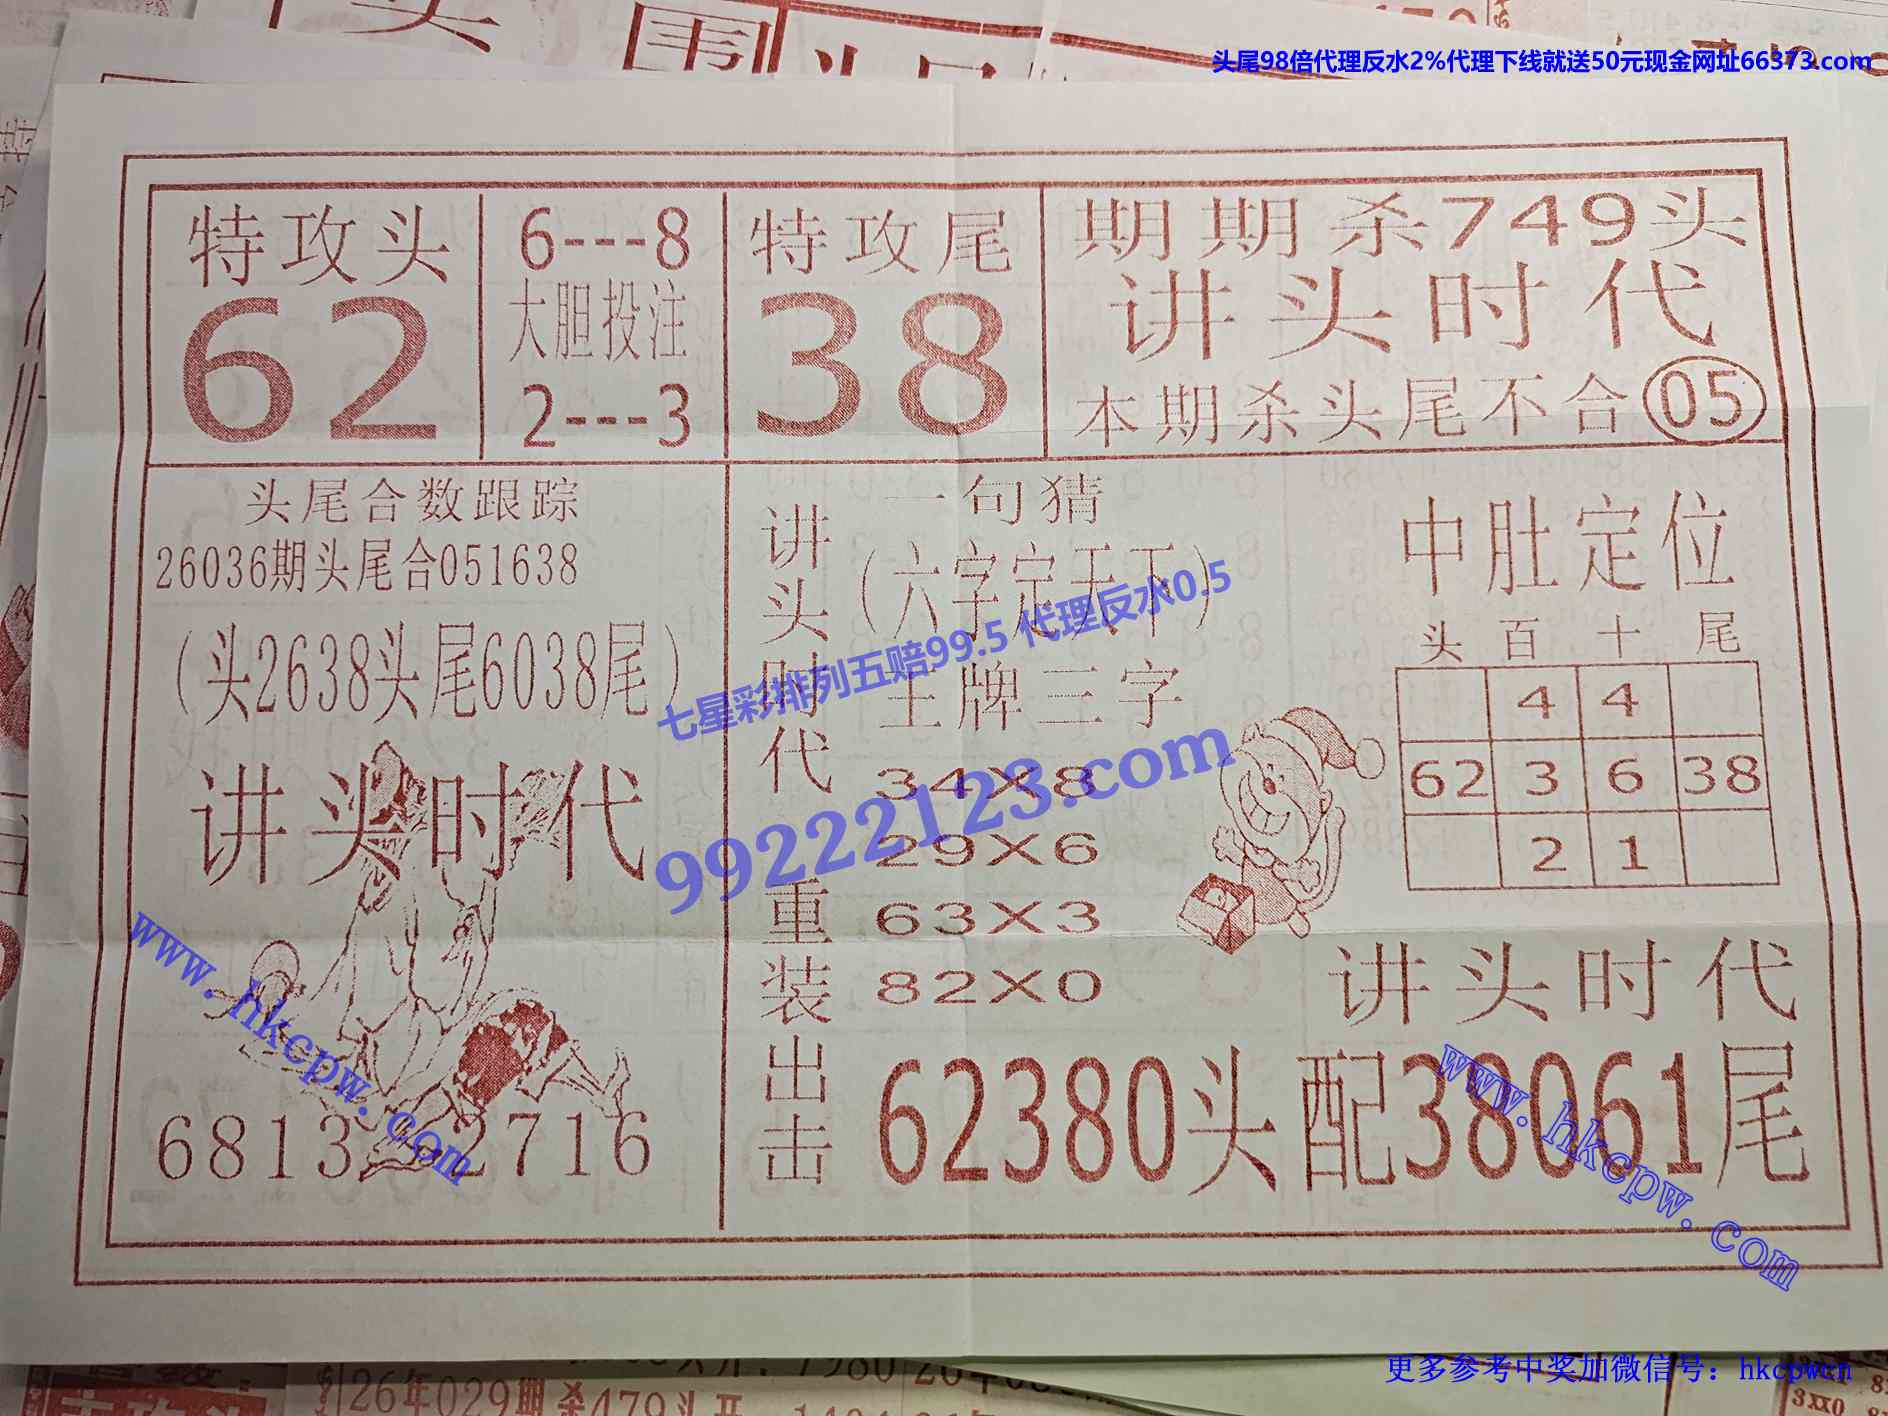 头尾98倍代理反水2%代理下线就送50元现金网址66373.com
特攻头
62
6---8
大胆投注
2---3
特攻尾
38
期期杀749头
讲头时代
本期杀头尾不合05
头尾合数跟踪
26036期头尾合051638
(头2638头尾6038尾)
讲头时代
6813 2716
讲头时代重装出击
一句猜
(六字定天下)
王牌三字
34X8
29X6
63X3
82X0
中肚定位
头 百 十 尾
4 4
62 3 6 38
2 1
讲头时代
62380头配38061尾
七星彩排列五赔99.5 代理反水0.5
99222123.com
www.hkcpw.com
www.hkcpw.com
26年029期杀479头开
更多参考中奖加微信号：hkcpwcn
3xx0